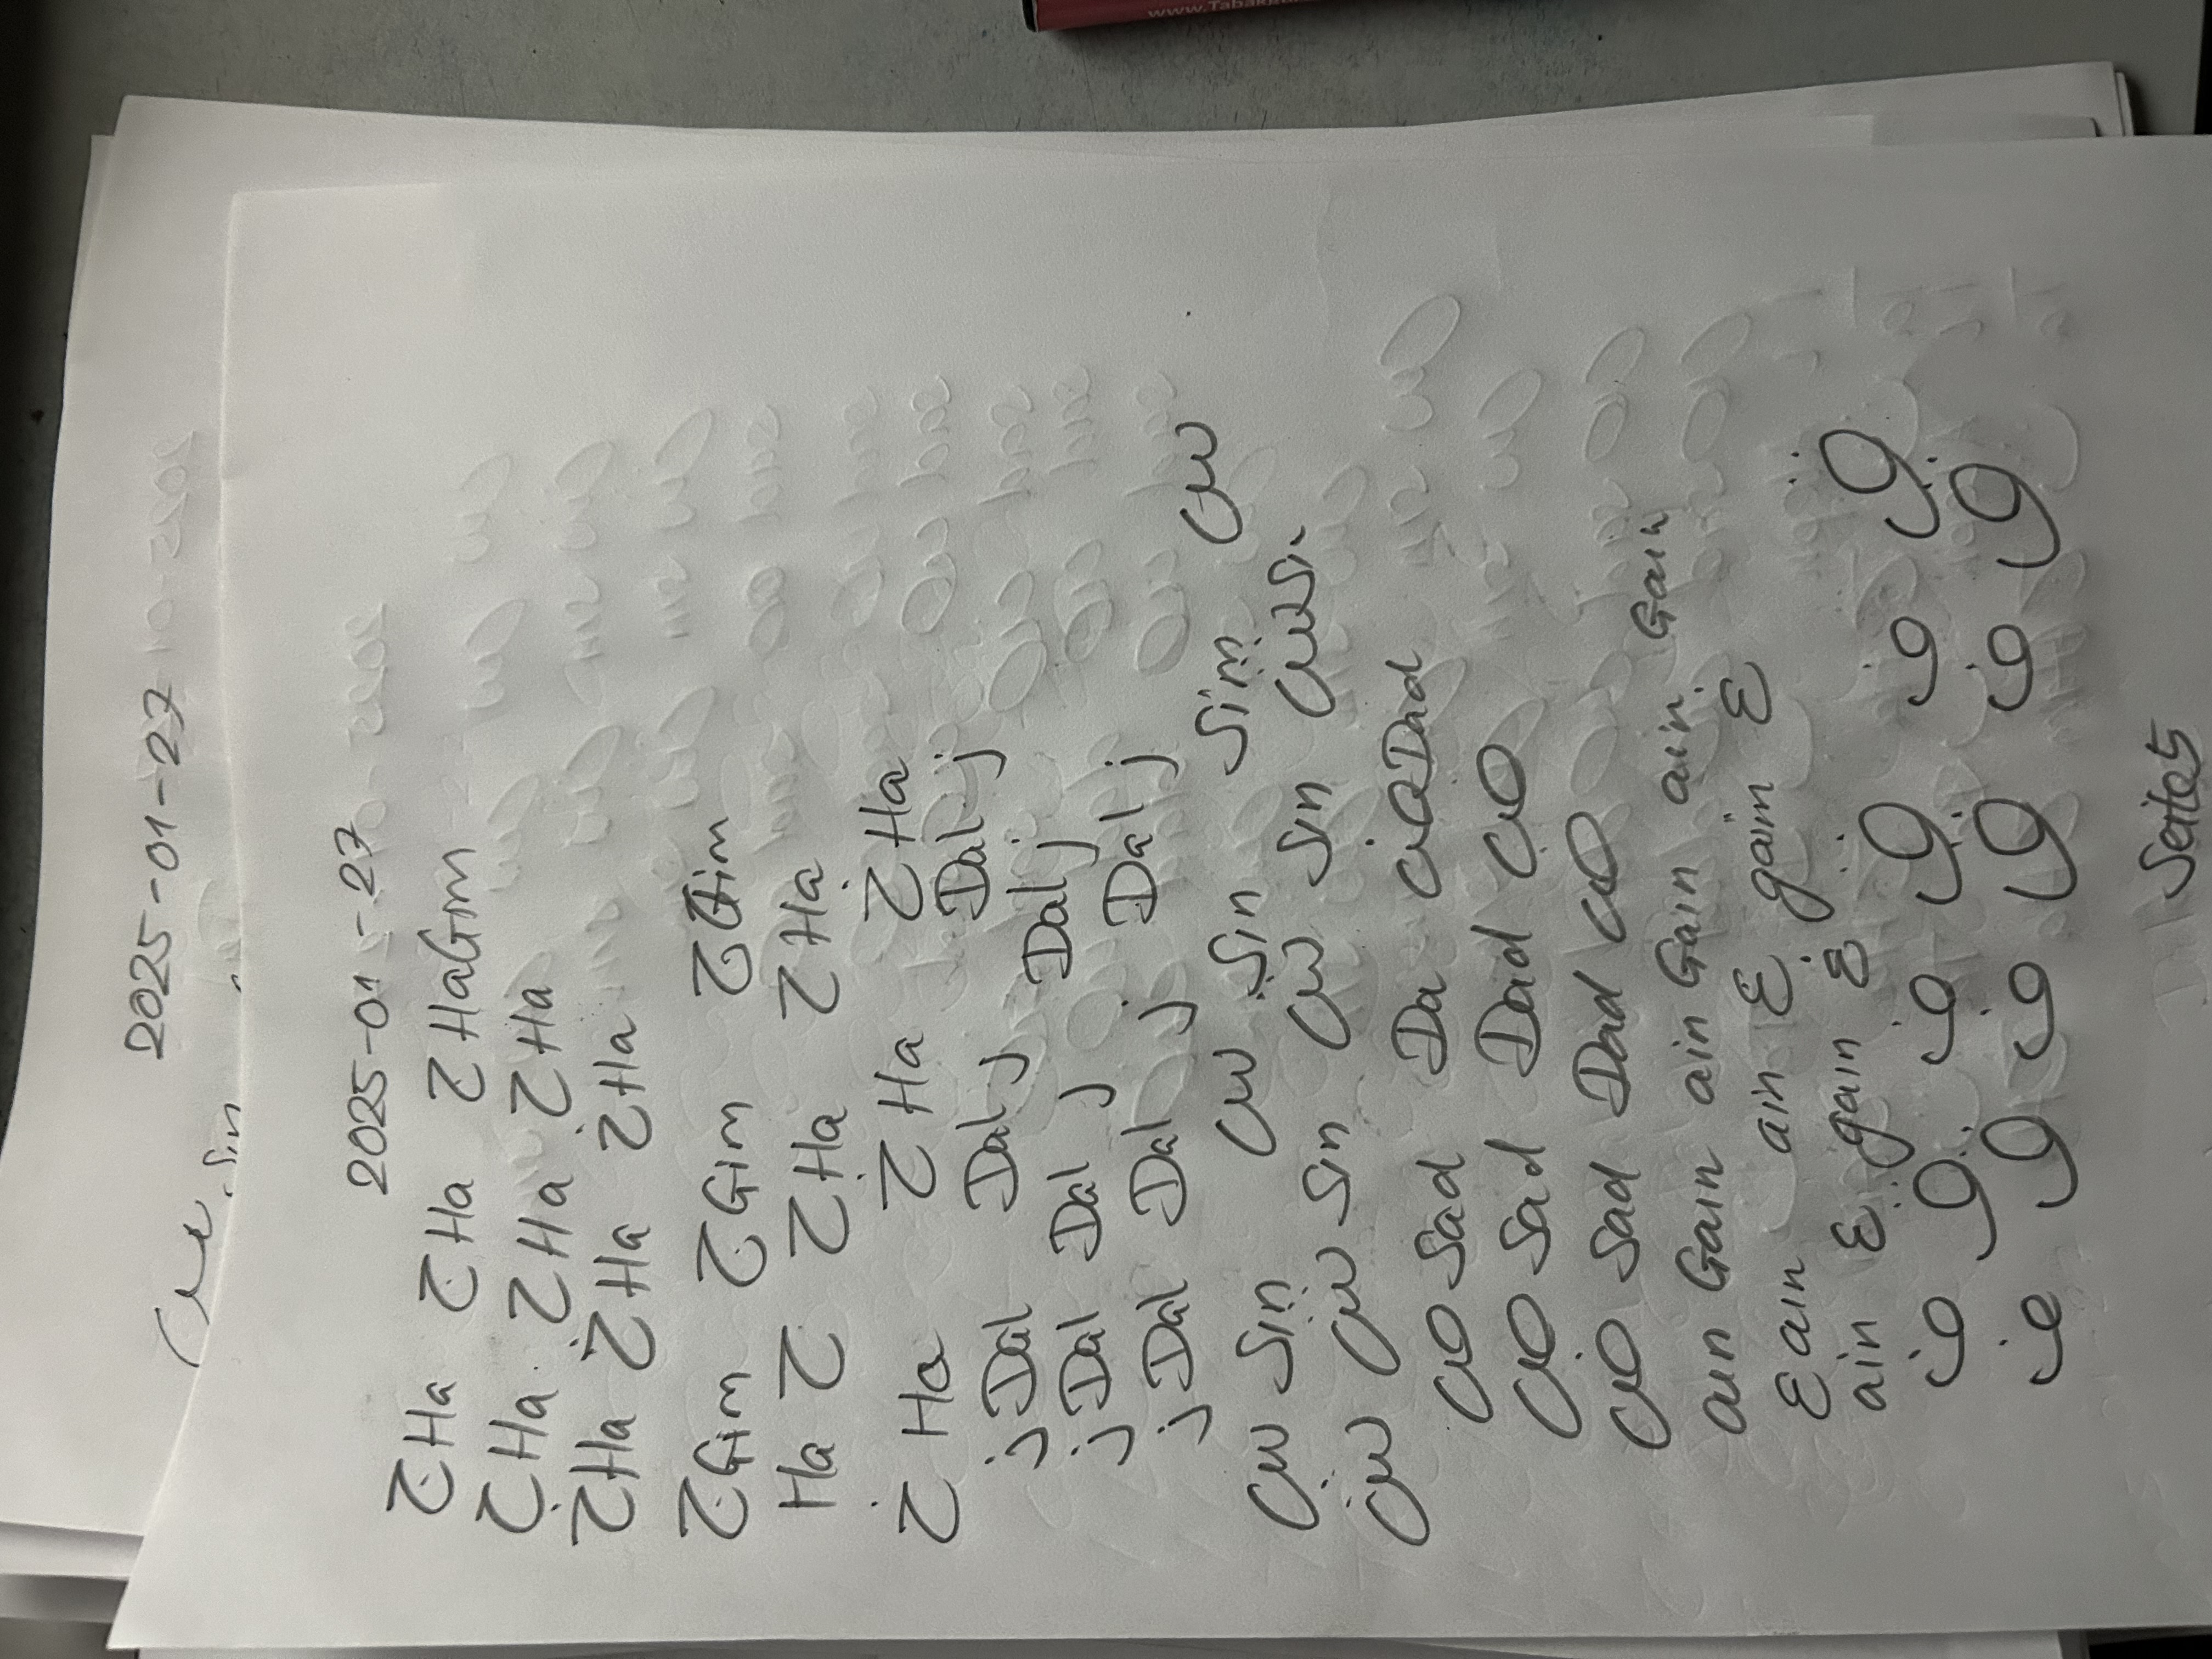 www.Tabak
2025-01-27
Sin
2025-01-27
ج Ha ج Ha ح HaGim
ج Ha. ح Ha خ Ha
خ Ha خ Ha خ Ha
ج Gim ج Gim ح Gim
Ha ح ح Ha ح Ha
خ Ha ح Ha خ Ha
ذ Dal Dal د Dal ذ
ذ Dal د Dal د Dal د
ذ Dal Dal ذ Dal ذ
س Sin س Sin Sin س
ش ش Sin ش Sin س
ص Sad Da ض Dad
ص Sad Dad ض
ض Sad Dad ص
ain Gain ain Gain ain Gain
ع ain ain غ gain ع
ain ع gain غ
ف ق ف ق ف ق
ف ق ف ق ف ق
Seite5